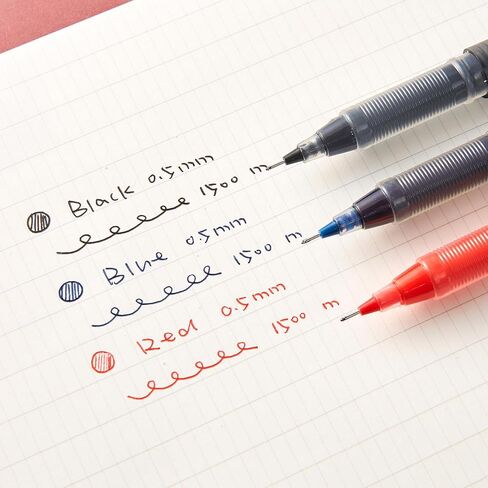 Black 0.5mm
1500 m
Blue 0.5mm
1500 m
Red 0.5mm
1500 m